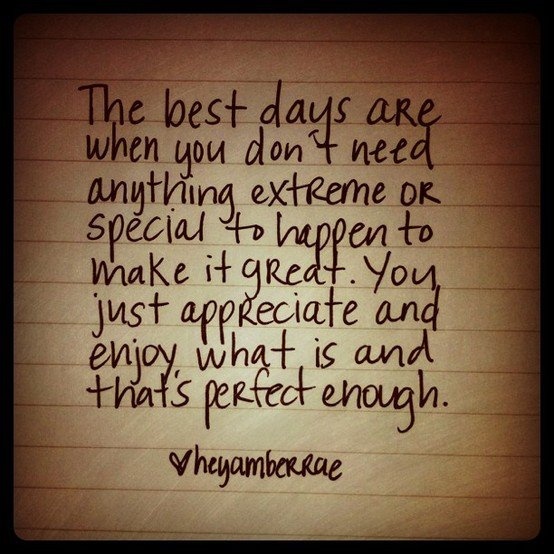 The best days are
when you don't need
anything extreme or
special to happen to
make it great. You
just appreciate and
enjoy what is and
that's perfect enough.
♥heyamberrae